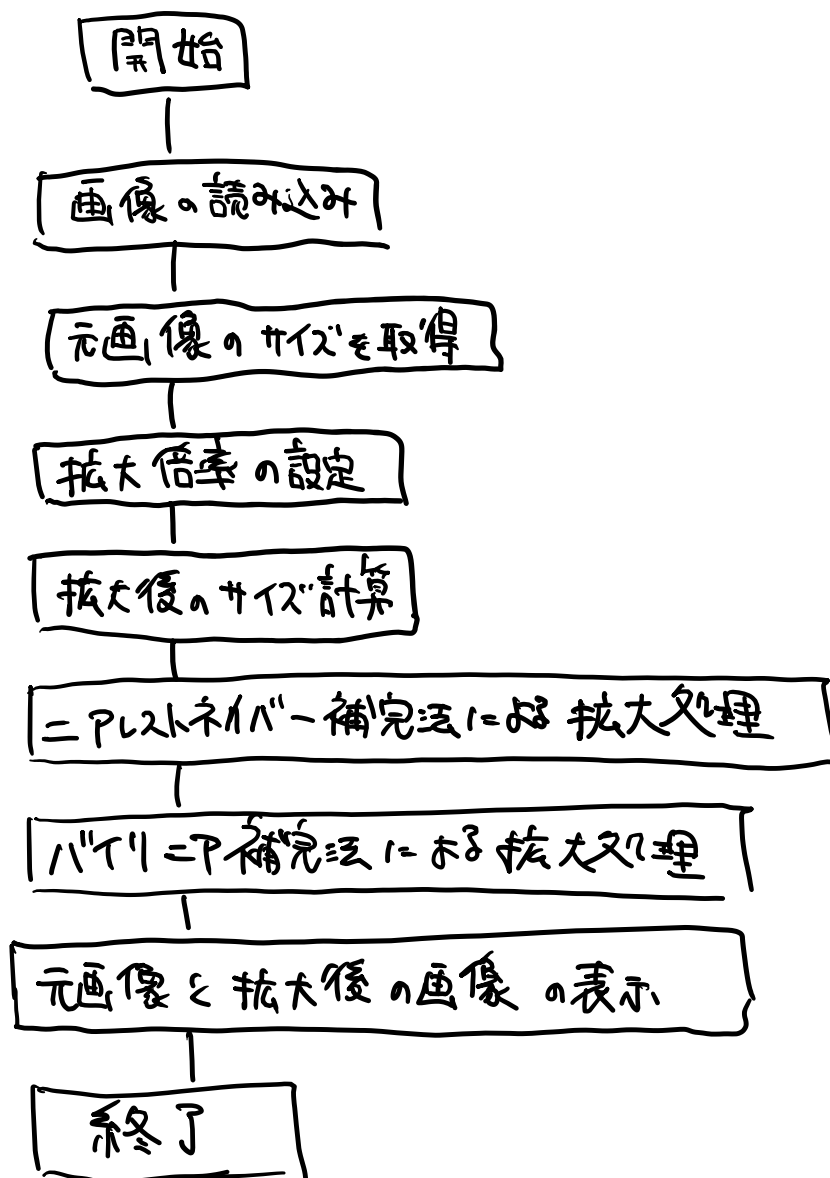 開始
画像の読み込み
元画像のサイズを取得
拡大倍率の設定
拡大後のサイズ計算
ニアレストネイバー補完法による拡大処理
バイリニア補完法による拡大処理
元画像と拡大後の画像の表示
終了